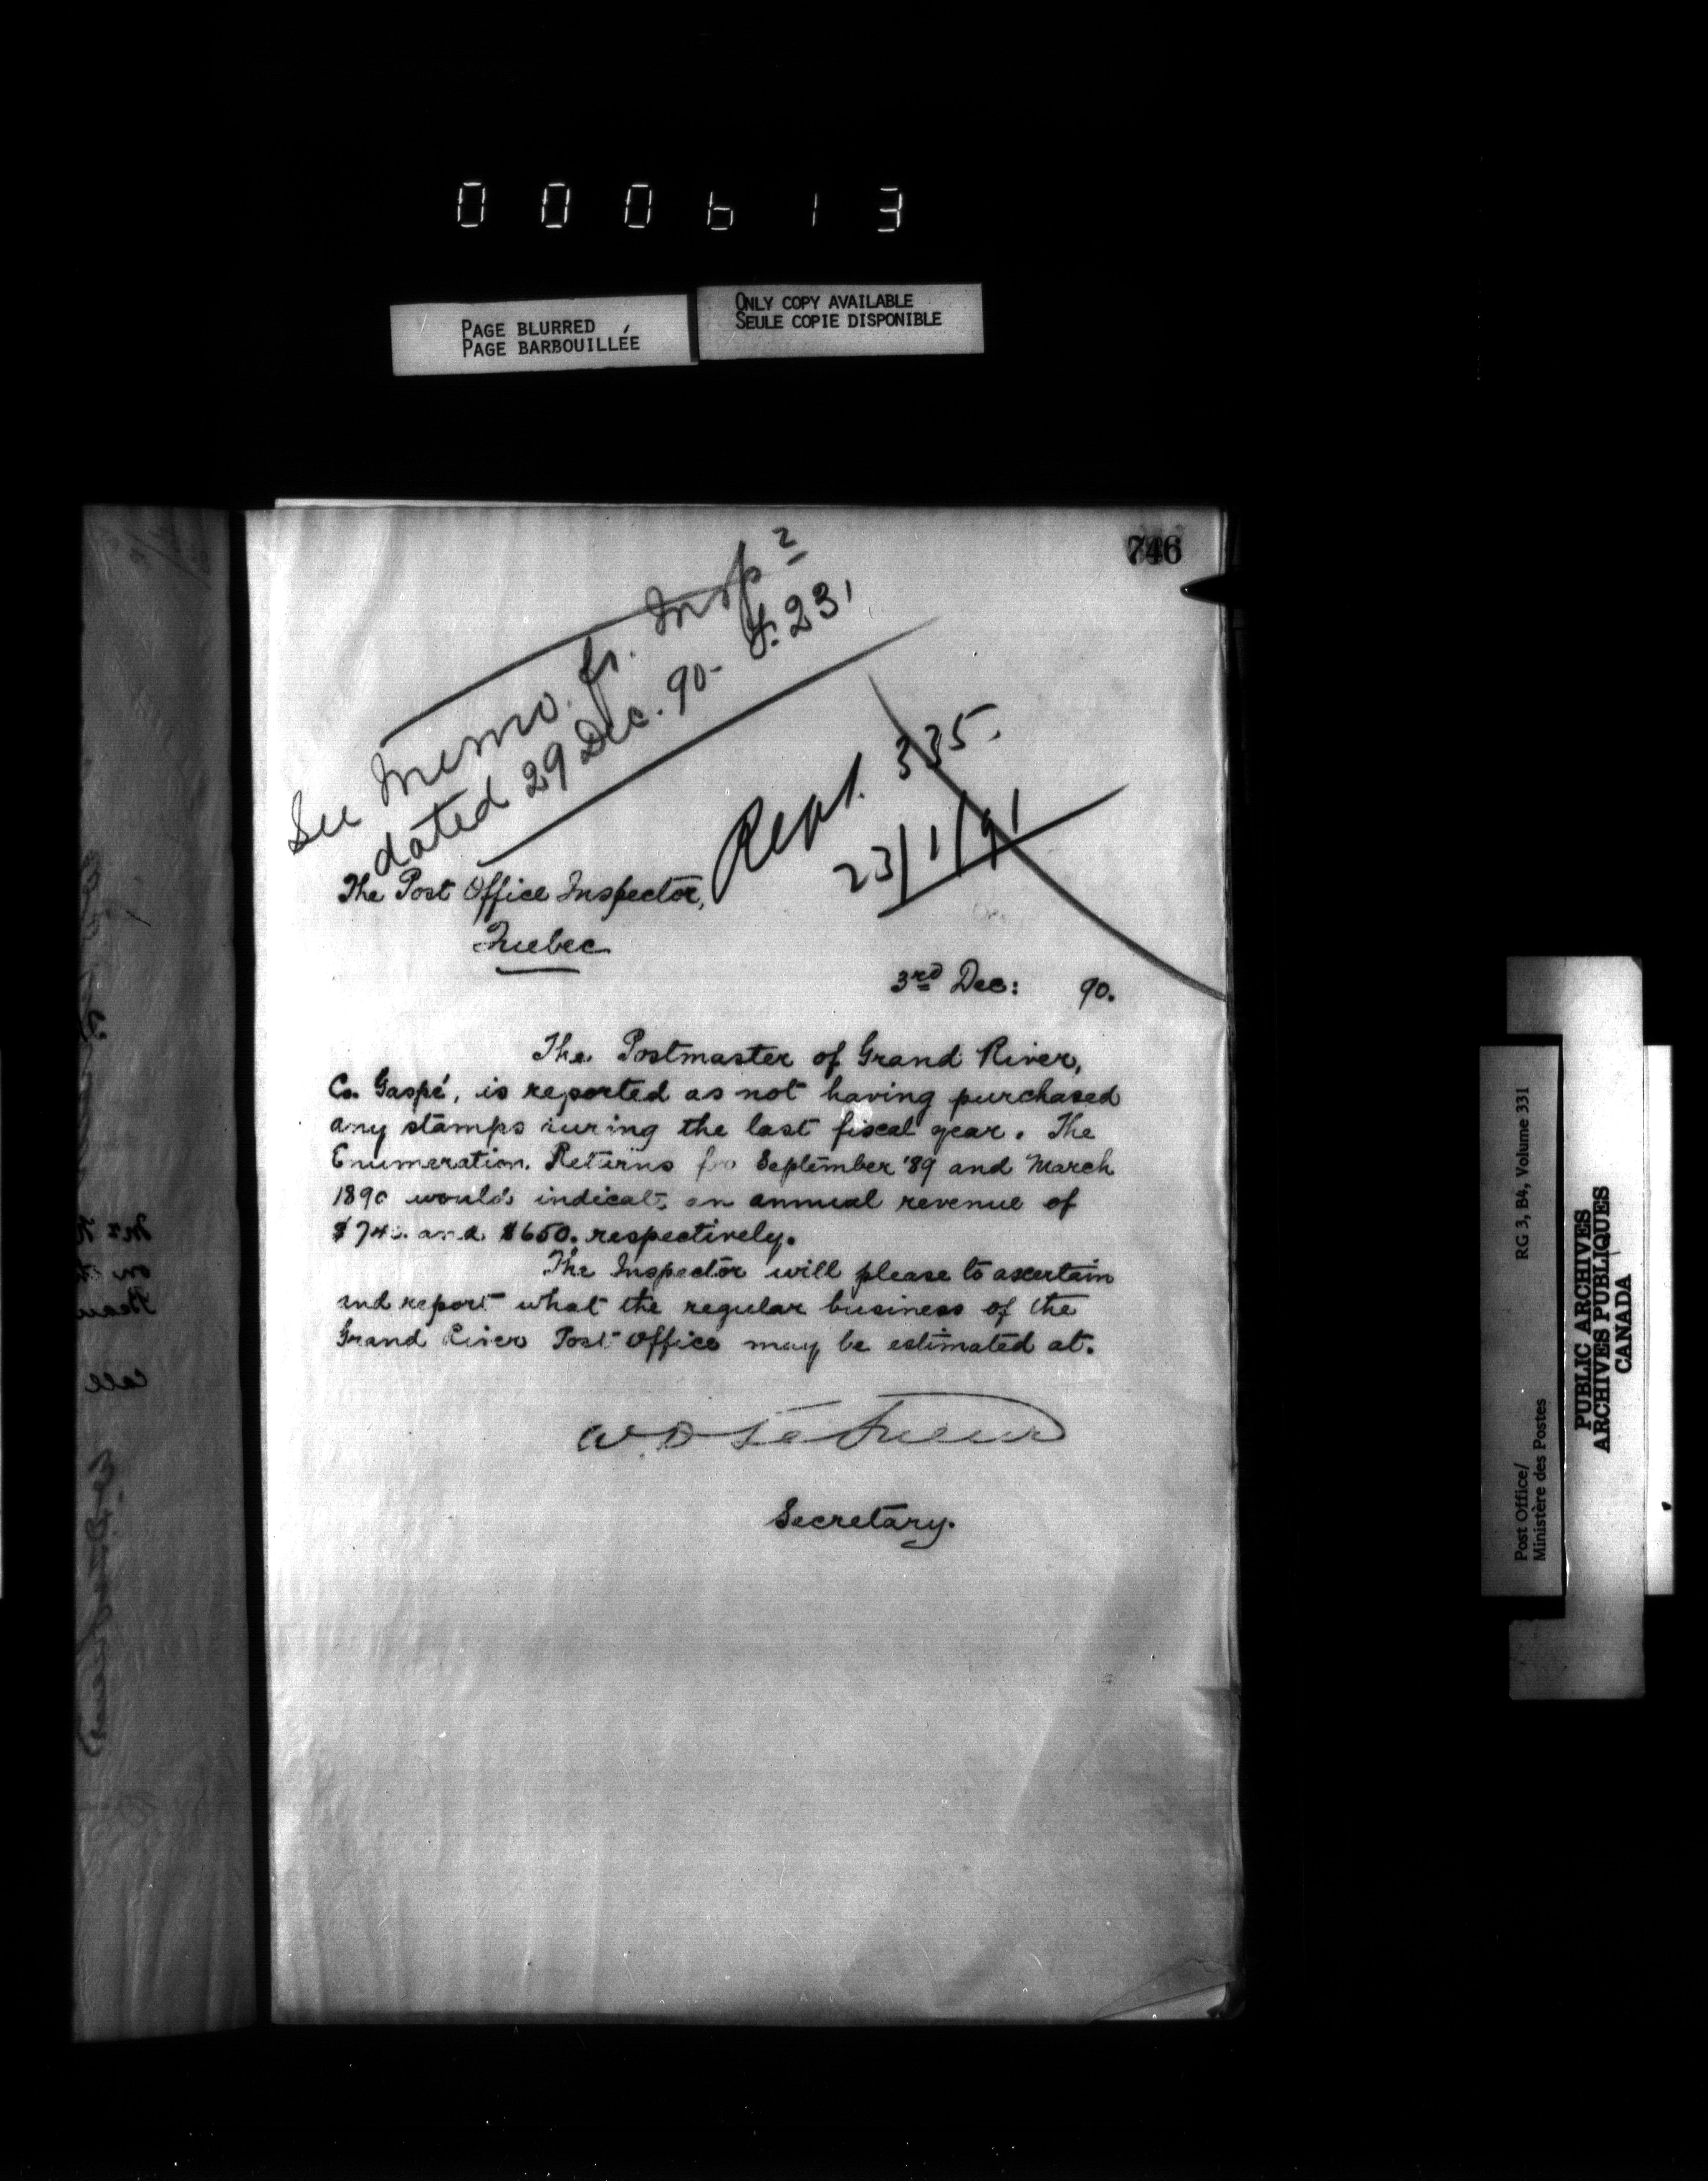 000613
PAGE BLURRED
PAGE BARBOUILLÉE
ONLY COPY AVAILABLE
SEULE COPIE DISPONIBLE
746
See Memo. fr. Insp
dated 29 Dec. 90-
Rept. 335.
23/1/91
The Post Office Inspector,
Quebec
3rd Dec: 90.
The Postmaster of Grand River,
Co. Gaspé, is reported as not having purchased
any stamps during the last fiscal year. The
Enumeration Returns for September '89 and March
1890 would indicate an annual revenue of
and $650. respectively.
The Inspector will please to ascertain
and report what the regular business of the
Grand River Post Office may be estimated at.
W D LeSueur
Secretary.
Post Office/
Ministère des Postes
RG 3, B4, Volume 331
PUBLIC ARCHIVES
ARCHIVES PUBLIQUES
CANADA